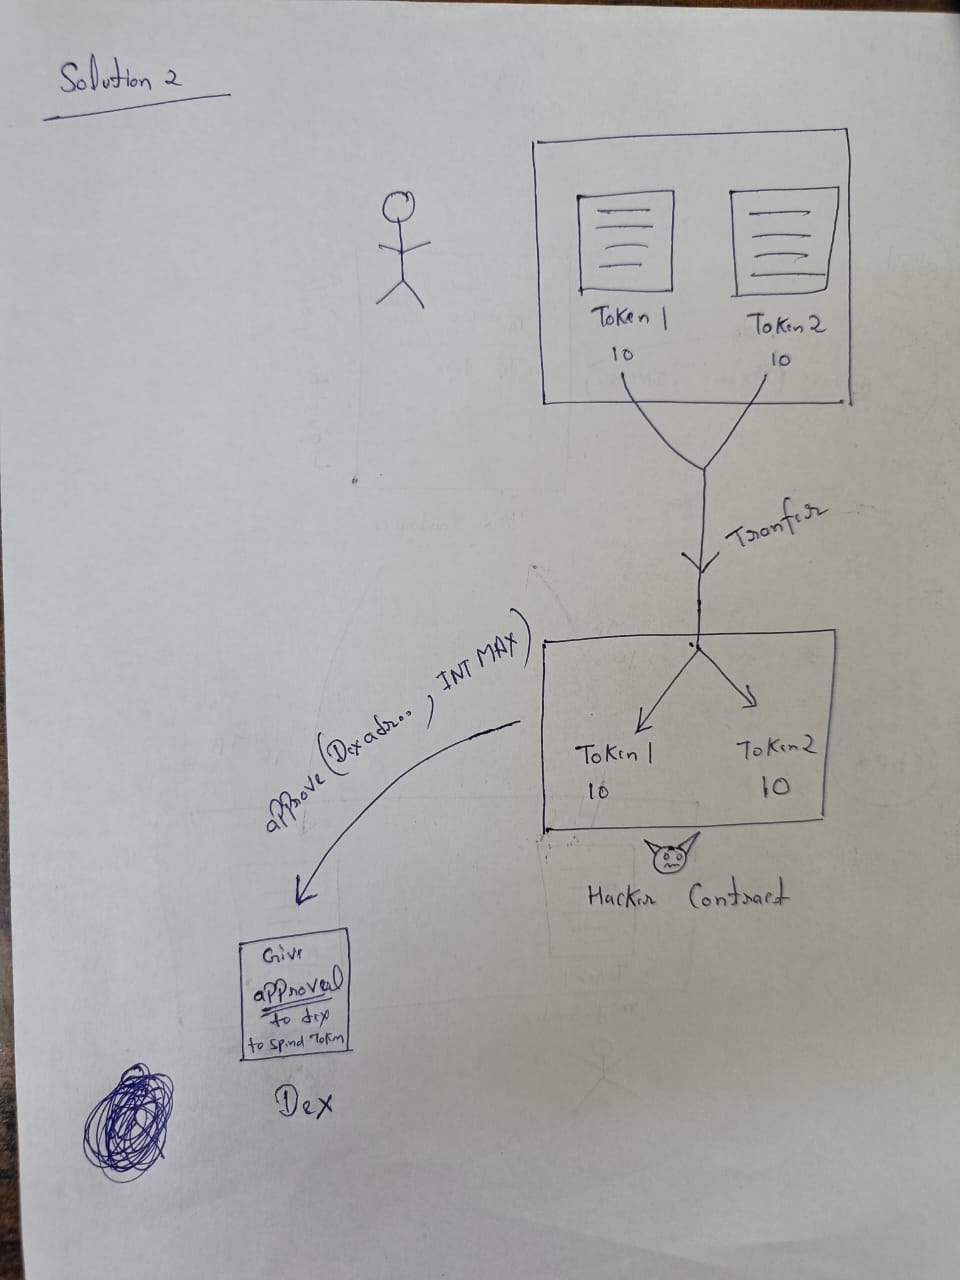 Solution 2
Token 1
10
Token 2
10
Tranfer
approve (Dex adr.. , INT MAX)
Token 1
10
Token 2
10
Hacker Contract
Give
approval
to dex
to spend Token
Dex